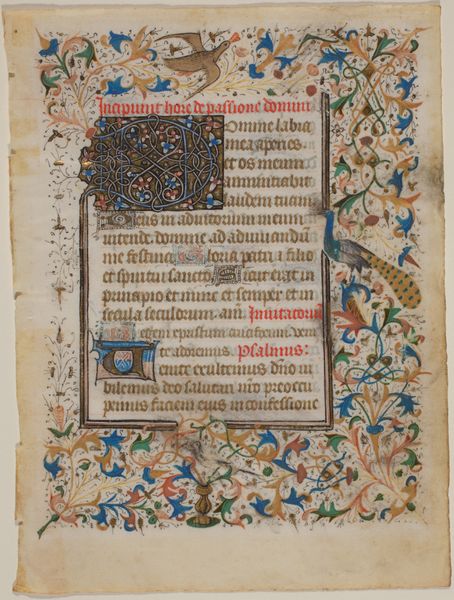 Incipiunt hore de passione domini
Domine labia
mea aperies
et os meum
annuntiabit
laudem tuam
Deus in adiutorium meum
intende. domine ad adiuvandũ
me festina Gloria patri ⁊ filio
et spiritui sancto Sicut erat in
principio et nunc et semper et in
secula seculorum. am̃. Invitatoriũ
te adoremus. Psalmus:
Venite exultemus dño iu
bilemus deo salutari nr̃o preoccu
pemus faciem eius in confessione